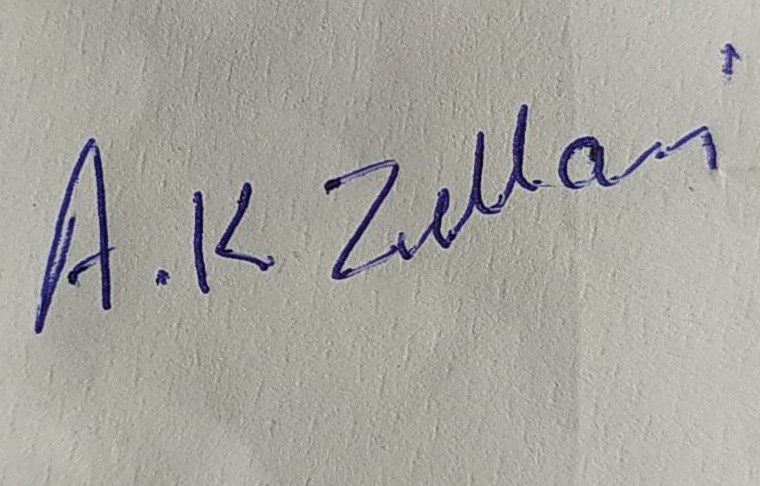 A.K Zellani